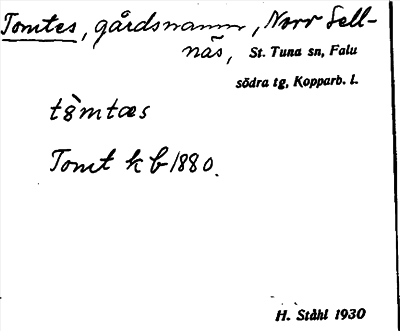 Tomtes, gårdsnamn, Norr Sell-
näs, St. Tuna sn, Falu
södra tg, Kopparb. l.
tòmtæs
Tomt kb 1880.
H. Ståhl 1930